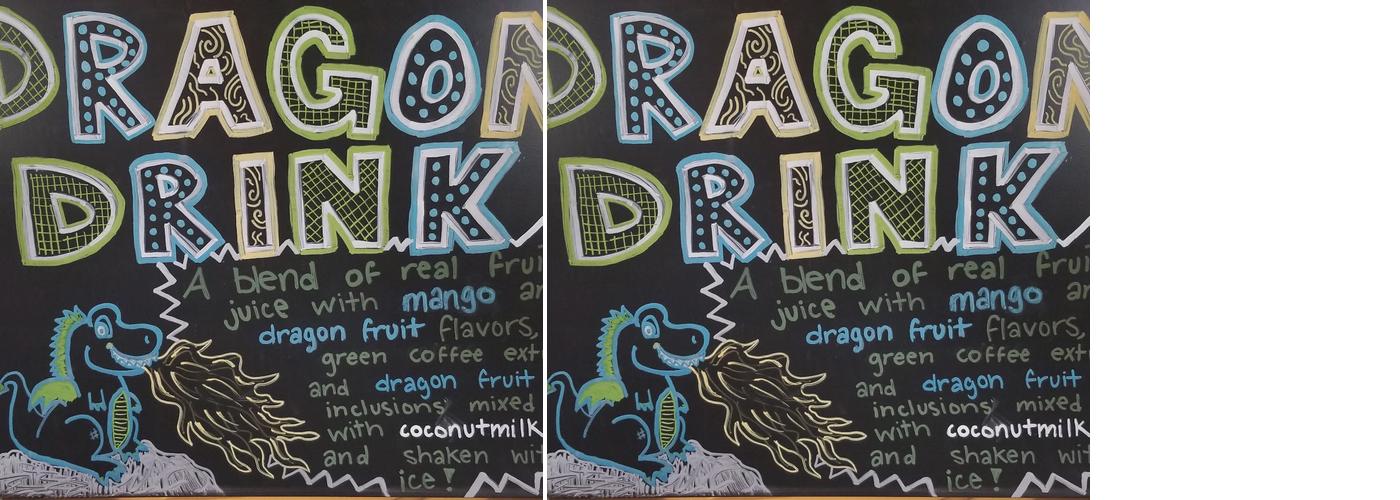 DRAGON
DRINK
A blend of real frui
juice with mango
dragon fruit flavors,
green coffee ext
and dragon fruit
inclusions mixed
with coconutmilk
and shaken wit
ice!
DRAGON
DRINK
A blend of real frui
juice with mango
dragon fruit flavors,
green coffee ext
and dragon fruit
inclusions mixed
with coconutmilk
and shaken wit
ice!